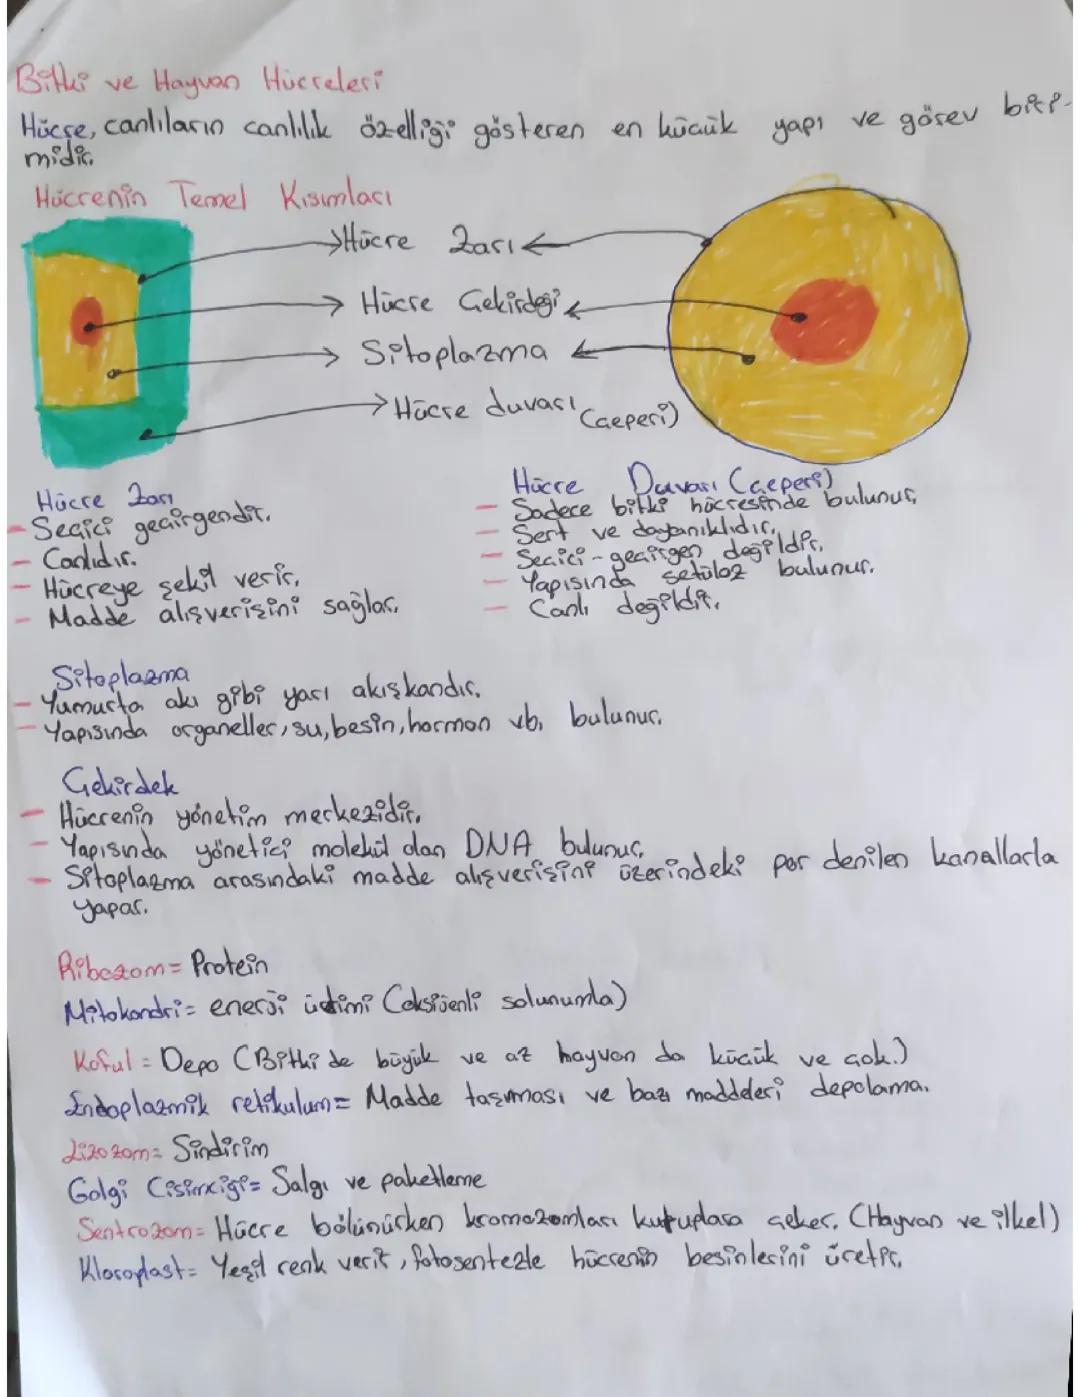 Bitki ve Hayvan Hücreleri
Hücre, canlıların canlılık özelliği gösteren en küçük yapı ve görev biri-
midir.
Hücrenin Temel Kısımları
Hücre Zarı
Hücre Çekirdeği
Sitoplazma
Hücre duvarı (çeperi)
Hücre Zarı
- Seçici geçirgendir.
- Canlıdır.
- Hücreye şekil verir.
- Madde alışverişini sağlar.
Hücre Duvarı (çeperi)
- Sadece bitki hücresinde bulunur.
- Sert ve dayanıklıdır.
- Seçici-geçirgen değildir.
- Yapısında selüloz bulunur.
- Canlı değildir.
Sitoplazma
- Yumurta akı gibi yarı akışkandır.
- Yapısında organeller, su, besin, hormon vb. bulunur.
Çekirdek
- Hücrenin yönetim merkezidir.
- Yapısında yönetici molekül olan DNA bulunur.
- Sitoplazma arasındaki madde alışverişini üzerindeki por denilen kanallarla
yapar.
Ribozom= Protein
Mitokondri= enerji üretimi (oksijenli solunumla)
Koful = Depo (Bitki de büyük ve az hayvan da küçük ve çok.)
Endoplazmik retikulum= Madde taşıması ve bazı maddeleri depolama.
Lizozom= Sindirim
Golgi Cisimciği= Salgı ve paketleme
Sentrozom= Hücre bölünürken kromozomları kutuplara çeker. (Hayvan ve ilkel)
Kloroplast= Yeşil renk verir, fotosentezle hücrenin besinlerini üretir.